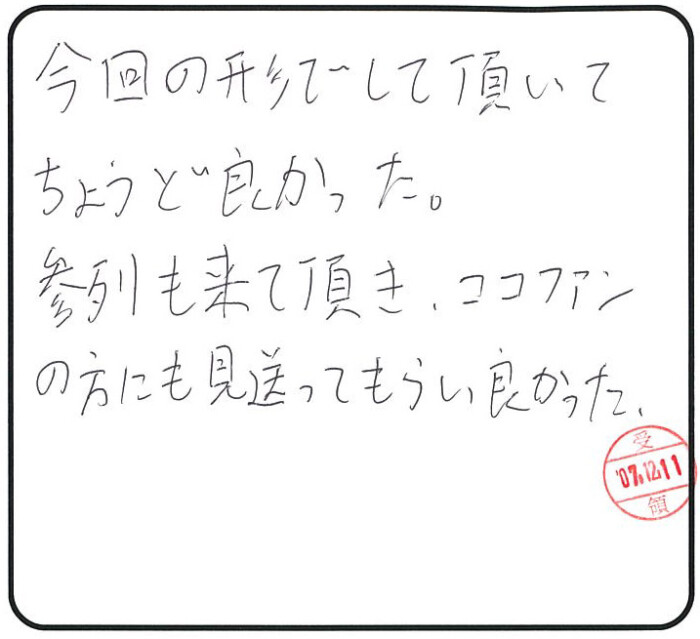 今回の形でして頂いて
ちょうど良かった。
参列も来て頂き、ココファン
の方にも見送ってもらい良かった、
受
'07.12.11
領